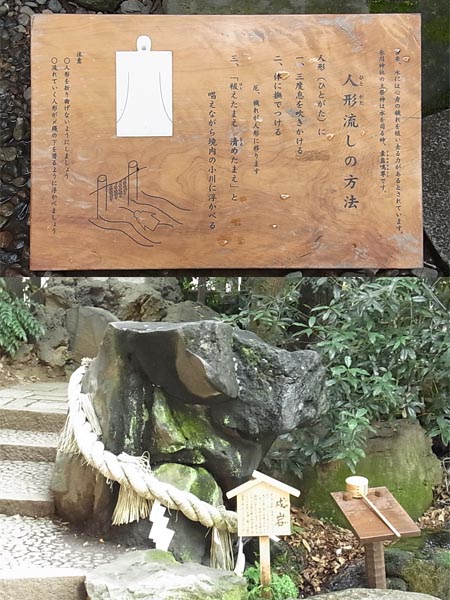 古来、水には心身の穢れを祓い去る力があるとされています。
氷川神社の主祭神は水を司る神、素盞鳴尊です。
人形流しの方法
ひとかた
人形(ひとがた)に
一、三度息を吹きかける
二、体に撫でつける
厄、穢れが人形に移ります
三、「祓えたまえ 清めたまえ」と
唱えながら境内の小川に浮かべる
注意
○人形を折り曲げないようにしましょう
○流れていく人形が〆縄の下を潜るように浮かべましょう
戌岩